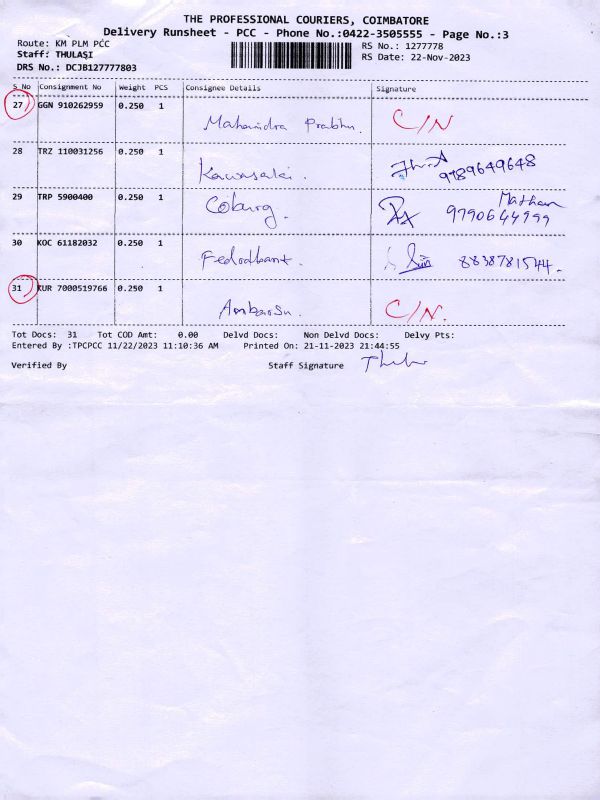 THE PROFESSIONAL COURIERS, COIMBATORE
Delivery Runsheet - PCC - Phone No.:0422-3505555 - Page No.:3
Route: KM PLM PCC
Staff: THULASI
DRS No.: DCJB127777803
RS No.: 1277778
RS Date: 22-Nov-2023
S No Consignment No Weight PCS Consignee Details Signature
27 GGN 910262959 0.250 1
Mahaindra Prabhu. C/N
28 TRZ 110031256 0.250 1
Kawasaki. 9789649648
29 TRP 5900400 0.250 1
Coburg. Mathan
9790644999
30 KOC 61182032 0.250 1
Fedralbank. 8838781544.
31 KUR 7000519766 0.250 1
Ambarsu. C/N.
Tot Docs: 31 Tot COD Amt: 0.00 Delvd Docs: Non Delvd Docs: Delvy Pts:
Entered By :TPCPCC 11/22/2023 11:10:36 AM Printed On: 21-11-2023 21:44:55
Verified By Staff Signature